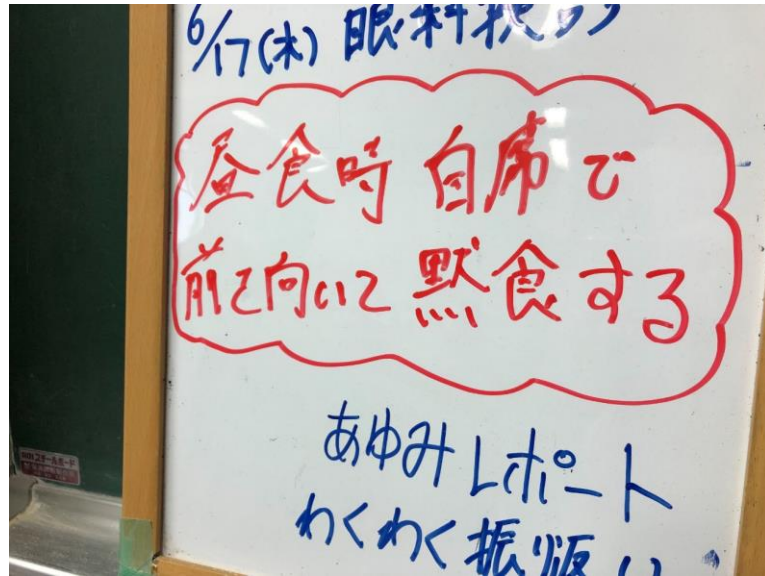 6/17(木) 眼科検診
昼食時 自席で
前を向いて 黙食する
あゆみレポート
わくわく振り返り
スチールボード